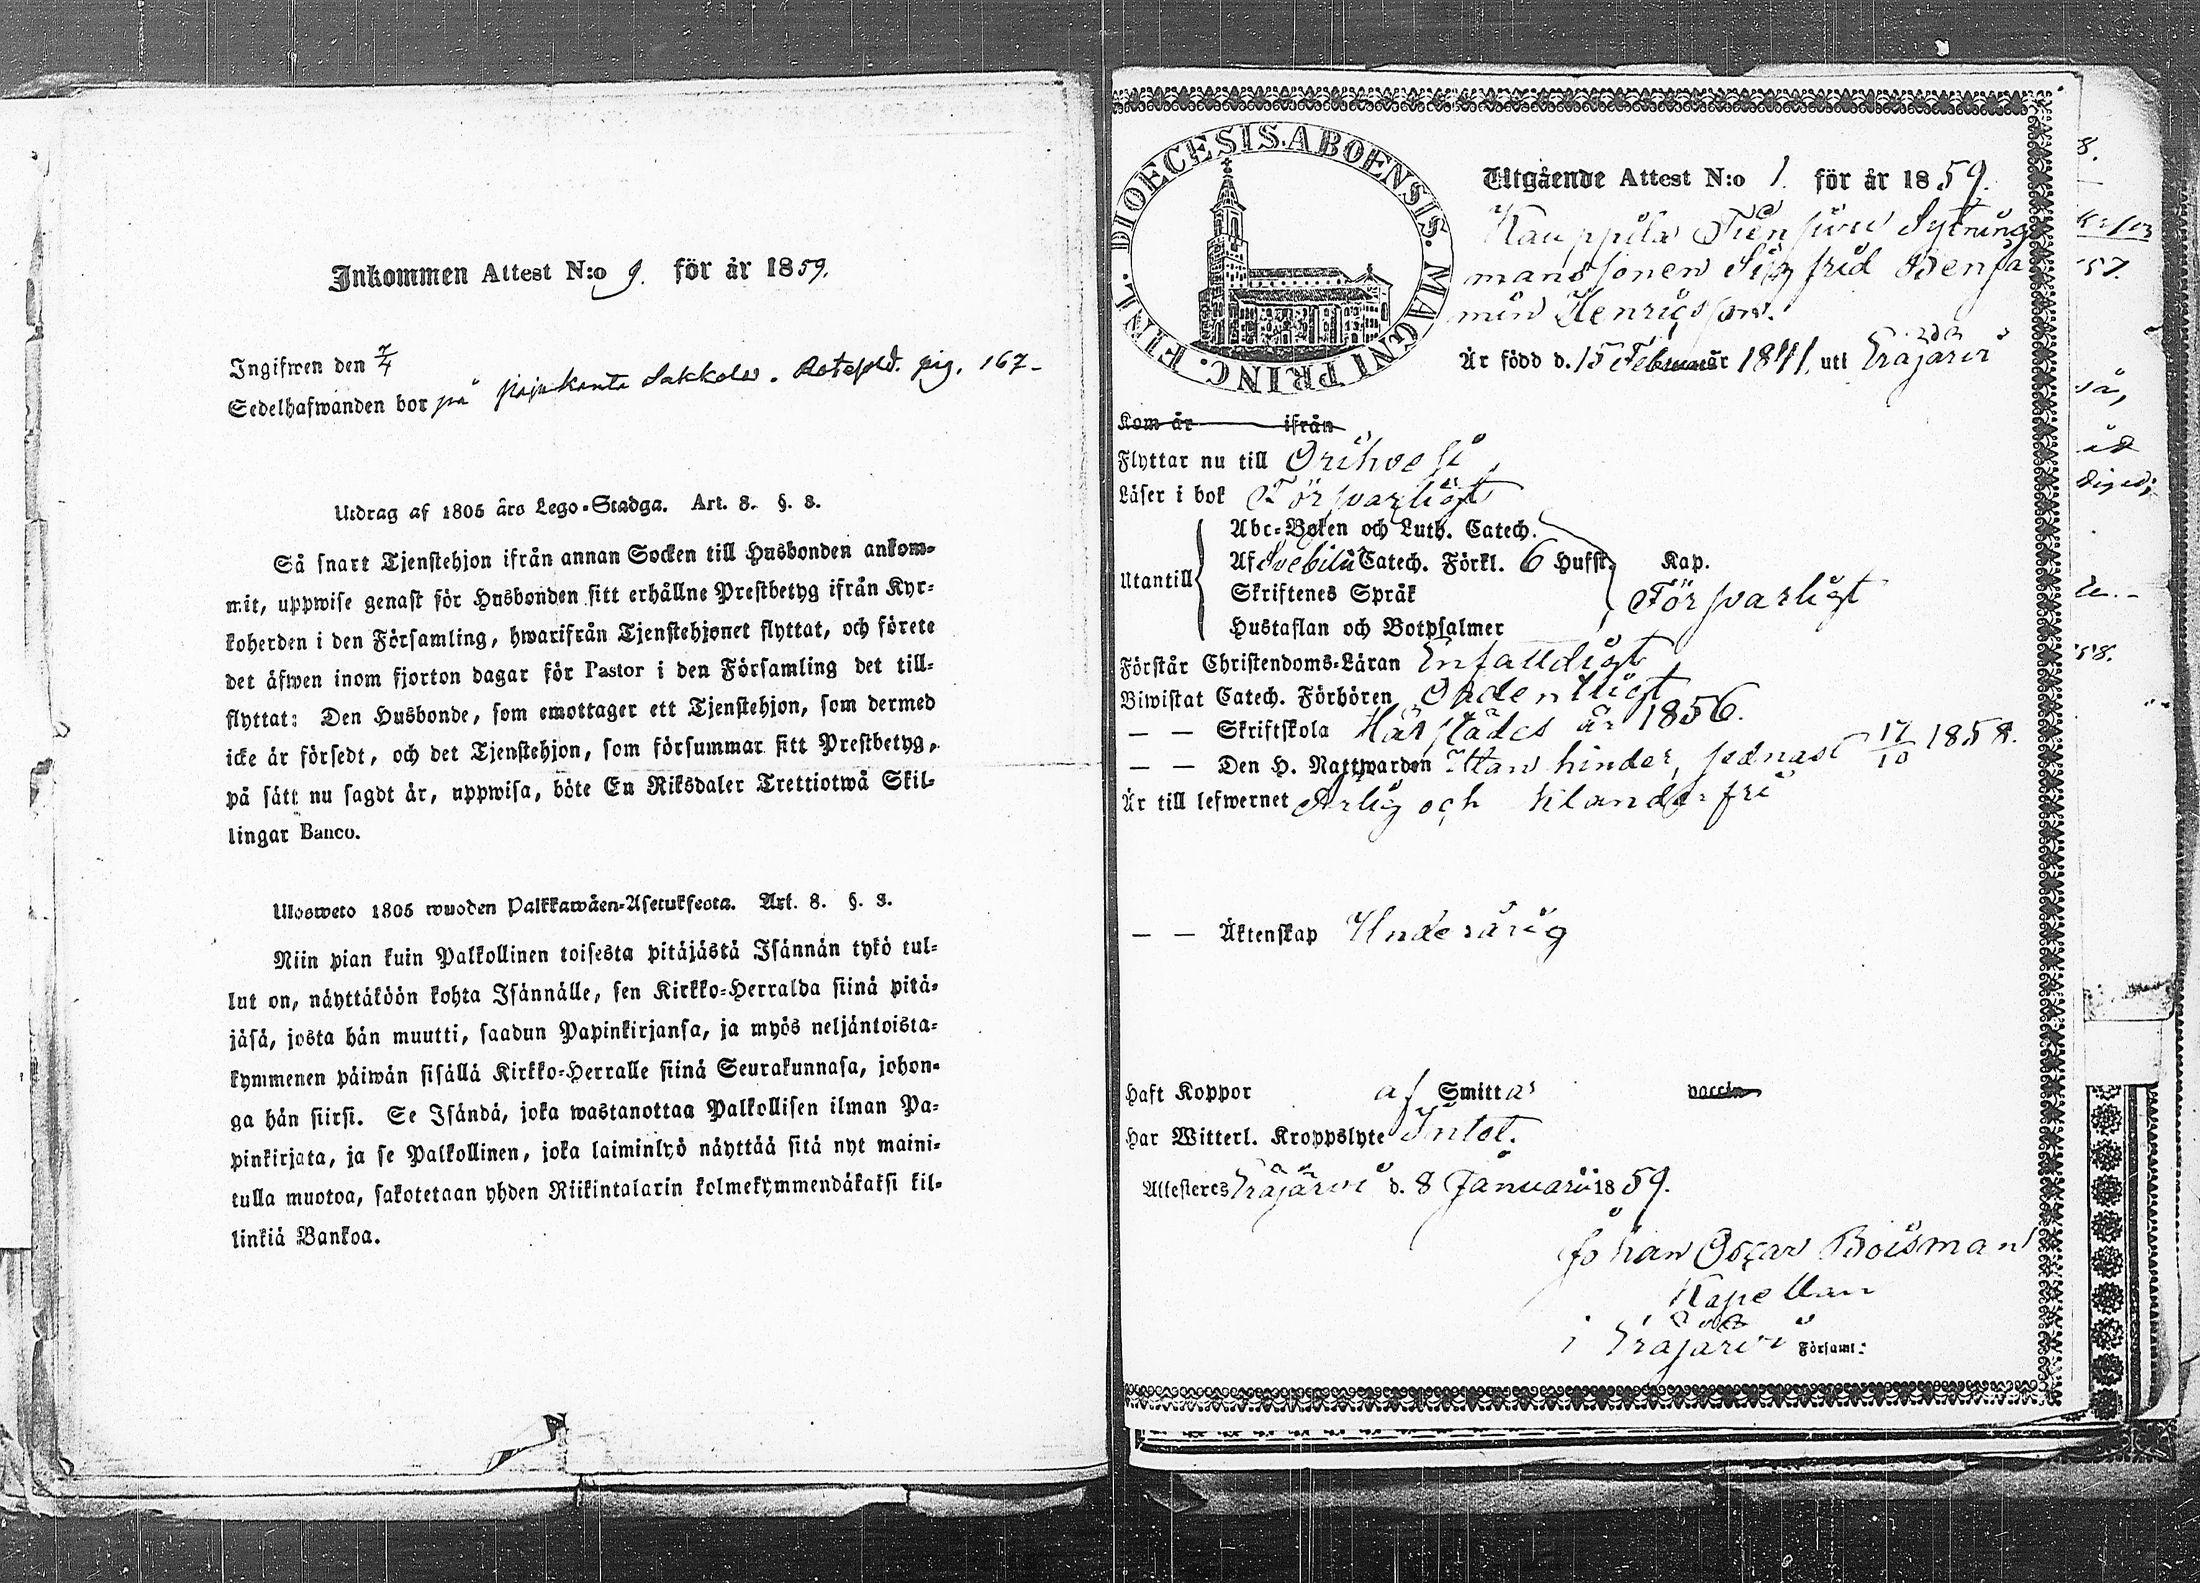 Inkommen Attest N:o 9. för år 1859.
Ingifwen den 7/4
Sedelhafwanden bor på Pajukanta Sakkola. Rotehld. pig. 167-
Utdrag af 1805 års Lego-Stadga. Art. 8. §. 3.
Så snart Tjenstehjon ifrån annan Socken till Husbonden ankom-
mit, uppwise genast för Husbonden sitt erhållne Prestbetyg ifrån Kyr-
koherden i den Församling, hwarifrån Tjenstehjonet flyttat, och förete
det äfwen inom fjorton dagar för Pastor i den Församling det till-
flyttat: Den Husbonde, som emottager ett Tjenstehjon, som dermed
icke är försedt, och det Tjenstehjon, som försummar sitt Prestbetyg,
på sätt nu sagdt är, uppwisa, böte En Riksdaler Trettiotwå Skil-
lingar Banco.
Ulosweto 1805 wuoden Palkkawäen-Asetuksesta. Art. 8. §. 3.
Niin pian kuin Palkollinen toisesta pitäjästä Isännän tykö tul-
lut on, näyttäköön kohta Isännälle, sen Kirkko-Herralda siinä pitä-
jäsä, josta hän muutti, saadun Papinkirjansa, ja myös neljäntoista-
kymmenen päiwän sisällä Kirkko-Herralle siinä Seurakunnasa, johon-
ga hän siirsi. Se Isändä, joka wastanottaa Palkollisen ilman Pa-
pinkirjata, ja se Palkollinen, joka laiminlyö näyttää sitä nyt maini-
tulla muotoa, sakotetaan yhden Riikintalarin kolmekymmendäkaksi kil-
linkiä Bankoa.
DIOECESIS. ABOENSIS. MAGNI PRINC. FINL.
Utgående Attest N:o 1. för år 1859.
Kauppila Sytnings
mans sonen Sigfrid Benja
min Henricsson.
Är född d. 15 Februari år 1841, uti Eräjärvi
Kom år ifrån
Flyttar nu till Orihvesi,
Läser i bok Försvarligt
Utantill
Abc-Boken och Luth. Catech.
Af Svebilii Catech. Förkl. 6 Hufst. Kap.
Skriftenes Språk Försvarligt
Hustaflan och Botpsalmer
Förstår Christendoms-Läran Enfalldigt
Biwistat Catech. Förhören Ordentligt
— — Skriftskola Härstädes år 1856.
— — Den H. Nattwarden Utan hinder, sednast 17/10 1858.
Är till lefwernet Ärlig och klanderfri
— — Äktenskap Underårig
Haft Koppor af Smitta vaccin
Har Witterl. Kroppslyte Intet.
Attesteres Eräjärvi d. 8 Januari 1859.
Johan Oscar Boisman
Kapellan
i Eräjärvi Församl: